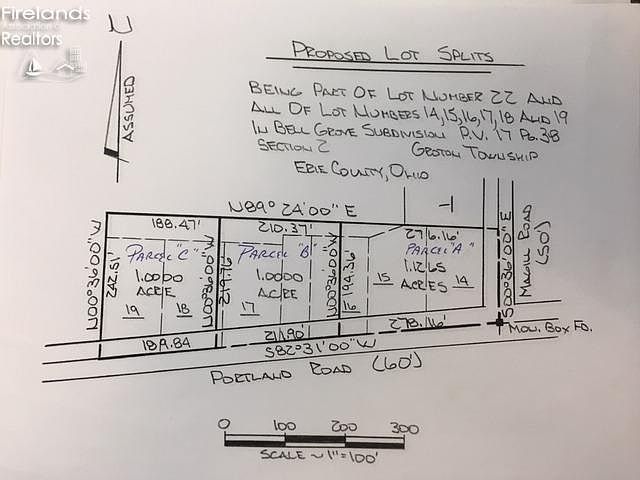 Firelands
Association of
Realtors
N
ASSUMED
PROPOSED LOT SPLITS
BEING PART OF LOT NUMBER 22 AND
ALL OF LOT NUMBERS 14,15,16,17,18 AND 19
IN BELL GROVE SUBDIVISION P.V. 17 PG. 38
SECTION 2 GROTON TOWNSHIP
ERIE COUNTY, OHIO
N89° 24'00" E
188.47' 210.37' 276.16'
PARCEL "C" PARCEL "B" PARCEL "A"
1.0000 1.0000 1.1265
ACRE ACRE ACRES
19 18 17 16 15 14
N00°36'00"W
242.51'
N00°36'00"W
219.76'
N00°36'00"W
194.36'
S00°36'00"E
MAGILL ROAD
(50')
MON. BOX FD.
189.84 211.90' 278.16'
S82°31'00"W
PORTLAND ROAD (60')
0 100 200 300
SCALE ~ 1"=100'